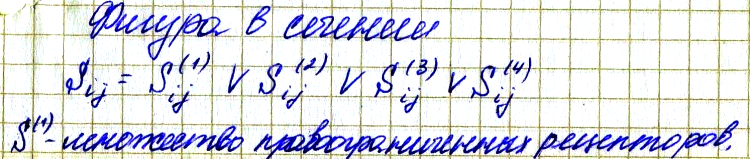 Фигура в сечении
S_ij = S_ij^(1) ∨ S_ij^(2) ∨ S_ij^(3) ∨ S_ij^(4)
S^(1) - множество правоограниченных рецепторов.